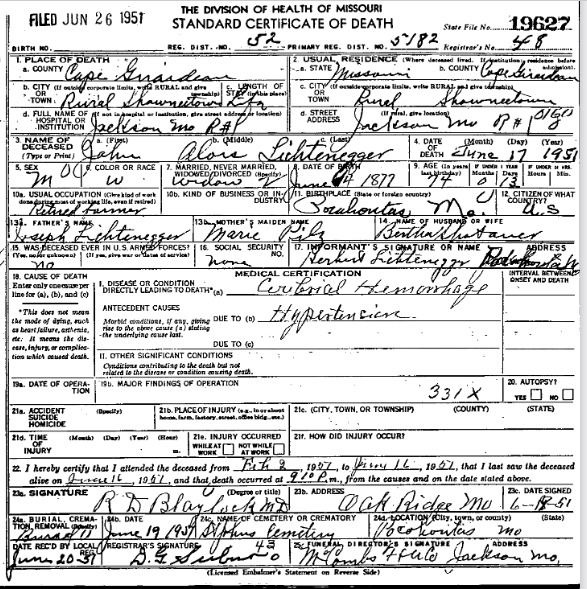 FILED JUN 26 1951
THE DIVISION OF HEALTH OF MISSOURI
STANDARD CERTIFICATE OF DEATH
State File No. 19627
BIRTH NO. REG. DIST. NO. 52 PRIMARY REG. DIST. NO. 5182 Registrar's No. 48
1. PLACE OF DEATH
a. COUNTY Cape Girardeau
2. USUAL RESIDENCE (Where deceased lived. If institution: residence before admission)
a. STATE Missouri b. COUNTY Cape Girardeau
b. CITY (If outside corporate limits, write RURAL and give township) OR TOWN: Rural Shawneetown
c. LENGTH OF STAY (in this place) Life
c. CITY (If outside corporate limits, write RURAL and give township) OR TOWN Rural Shawneetown
d. FULL NAME OF (If not in hospital or institution, give street address or location) HOSPITAL OR INSTITUTION Jackson Mo R#1
d. STREET ADDRESS (If rural, give location) Jackson Mo R#1
3. NAME OF DECEASED (Type or Print) a. (First) John b. (Middle) c. (Last) Lichtenegger
4. DATE OF DEATH (Month) (Day) (Year) June 17 1951
5. SEX M
6. COLOR OR RACE W
7. MARRIED, NEVER MARRIED, WIDOWED, DIVORCED (Specify) Widow
8. DATE OF BIRTH June 4 1877
9. AGE 74 0 13
10a. USUAL OCCUPATION (Give kind of work done during most of working life, even if retired) Retired Farmer
10b. KIND OF BUSINESS OR INDUSTRY
11. BIRTHPLACE (State or foreign country) Pocahontas, Mo.
12. CITIZEN OF WHAT COUNTRY? U.S
13a. FATHER'S NAME Joseph Lichtenegger
13b. MOTHER'S MAIDEN NAME Marie Pilz
14. NAME OF HUSBAND OR WIFE Bertha
15. WAS DECEASED EVER IN U.S. ARMED FORCES? (Yes, no, or unknown) (If yes, give war or dates of service) No
16. SOCIAL SECURITY NO. none
17. INFORMANT'S SIGNATURE OR NAME ADDRESS Herbert Lichtenegger
18. CAUSE OF DEATH
Enter only one cause per line for (a), (b), and (c)
MEDICAL CERTIFICATION
INTERVAL BETWEEN ONSET AND DEATH
I. DISEASE OR CONDITION DIRECTLY LEADING TO DEATH* (a) Cerebrial Hemorrhage
*This does not mean the mode of dying, such as heart failure, asthenia, etc. It means the disease, injury, or complication which caused death.
ANTECEDENT CAUSES
Morbid conditions, if any, giving rise to the above cause (a) stating the underlying cause last.
DUE TO (b) Hypertension
DUE TO (c)
II. OTHER SIGNIFICANT CONDITIONS
Conditions contributing to the death but not related to the disease or condition causing death.
331X
19a. DATE OF OPERATION
19b. MAJOR FINDINGS OF OPERATION
20. AUTOPSY? YES NO
21a. ACCIDENT SUICIDE HOMICIDE (Specify)
21b. PLACE OF INJURY (e.g., in or about home, farm, factory, street, office bldg., etc.)
21c. (CITY, TOWN, OR TOWNSHIP) (COUNTY) (STATE)
21d. TIME OF INJURY (Month) (Day) (Year) (Hour) m.
21e. INJURY OCCURRED WHILE AT WORK NOT WHILE AT WORK
21f. HOW DID INJURY OCCUR?
22. I hereby certify that I attended the deceased from Feb 2, 1951, to June 16, 1951, that I last saw the deceased
alive on June 16, 1951, and that death occurred at m., from the causes and on the date stated above.
23a. SIGNATURE (Degree or title) R D Blaylock M.D
23b. ADDRESS Oak Ridge Mo
23c. DATE SIGNED 6-18-51
24a. BURIAL, CREMATION, REMOVAL (Specify) Burial
24b. DATE June 19 1951
24c. NAME OF CEMETERY OR CREMATORY Cemetery
24d. LOCATION (City, town, or county) (State) Pocahontas Mo
DATE REC'D BY LOCAL REG. June 20-51
REGISTRAR'S SIGNATURE
25. FUNERAL DIRECTOR'S SIGNATURE ADDRESS McCombs F&U Co Jackson Mo.
(Licensed Embalmer's Statement on Reverse Side)